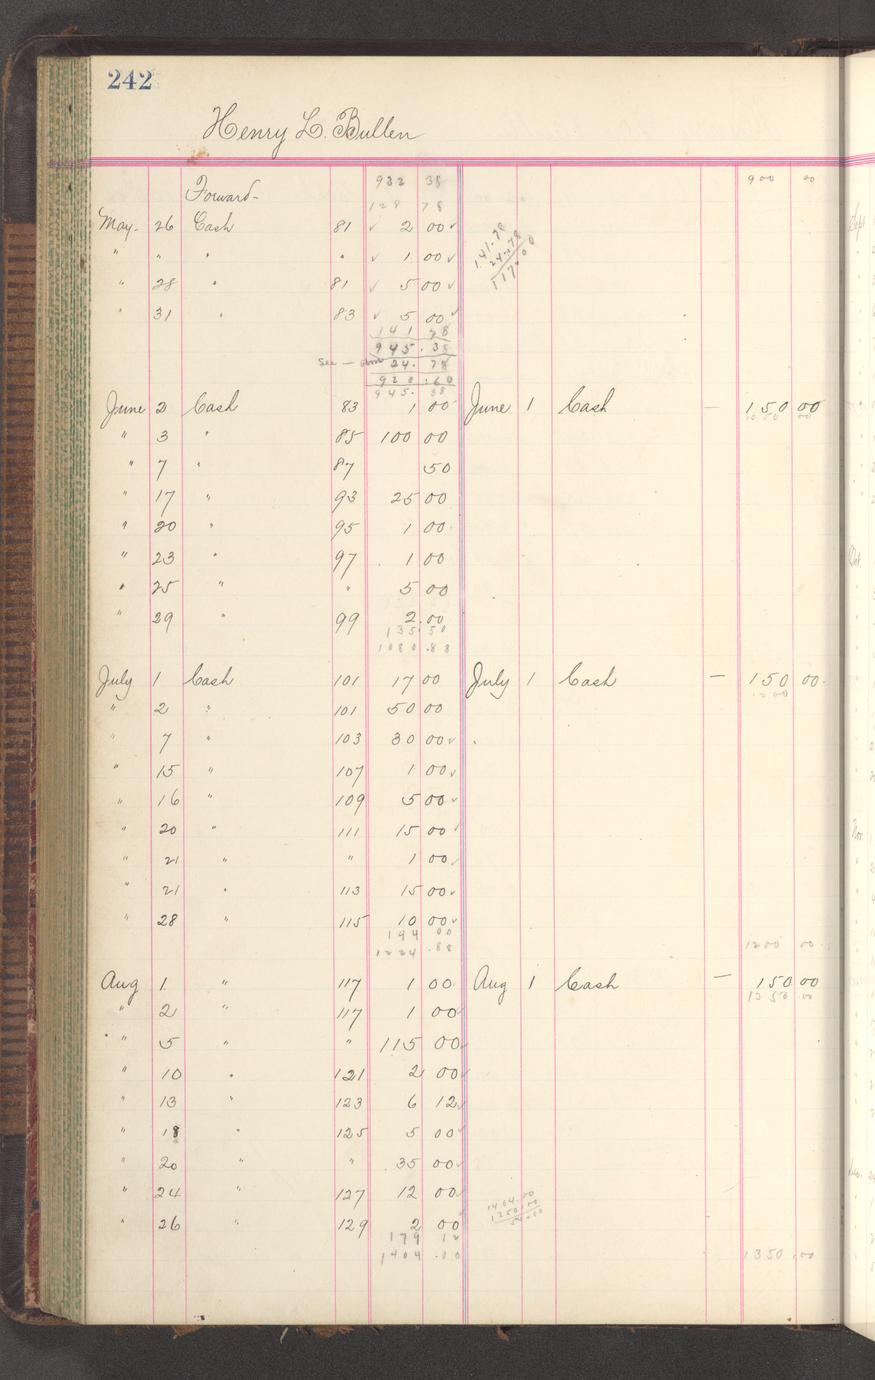 242
Henry L. Bullen
Forward- 932 38 900 00
128 78
May- 26 Cash 81 ✓ 2 00 ✓
" " " " ✓ 1 00 ✓
" 28 " 81 ✓ 5 00 ✓
" 31 " 83 ✓ 5 00 ✓
141.78
24.78
117.00
141 78
945.38
See — 24.78
920.60
945.38
June 2 Cash 83 1 00 June 1 Cash — 150 00
1050 00
" 3 " 85 100 00
" 7 " 87 50
" 17 " 93 25 00
" 20 " 95 1 00
" 23 " 97 1 00
" 25 " " 5 00
" 29 " 99 2.00
135.50
1080.88
July 1 Cash 101 17 00 July 1 Cash — 150 00
1200
" 2 " 101 50 00
" 7 " 103 30 00 ✓
" 15 " 107 1 00 ✓
" 16 " 109 5 00 ✓
" 20 " 111 15 00 ✓
" 21 " " 1 00 ✓
" 21 " 113 15 00 ✓
" 28 " 115 10 00 ✓
144 00
1224.88 1200 00
Aug 1 " 117 1 00 Aug 1 Cash — 150 00
1350.00
" 2 " 117 1 00 ✓
" 5 " " 115 00 ✓
" 10 " 121 2 00 ✓
" 13 " 123 6 12 ✓
" 18 " 125 5 00 ✓
" 20 " " 35 00 ✓
" 24 " 127 12 00 ✓
" 26 " 129 2 00 ✓
179 12
1404.00 1350.00
1404.00
1350.00
54.00